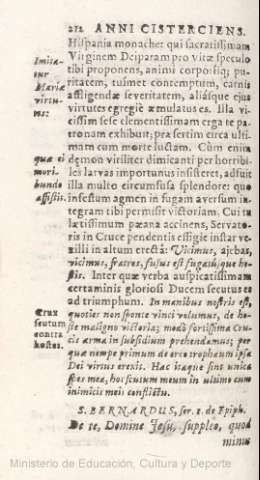 212 ANNI CISTERCIENS.
Hispania monachet qui sacratissimam
Imita- Virginem Deiparam pro vitæ speculo
tur tibi proponens, animi corporisq; pu-
Mariæ ritatem, tuimet contemptum, carnis
virtu- affligendæ severitatem, aliasque ejus
tes: virtutes egregiè æmulatus es. Illa vi-
cissim sese clementissimam erga te pa-
tronam exhibuit; præsertim circa ulti-
mam cum morte luctam. Cùm enim
quæ ei dęmon viriliter dimicanti per horribi-
mori- les larvas importunus insisteret, adfuit
bundo illa multo circumfusa splendore; quo
assistit. infestum agmen in fugam aversum in-
tegram tibi permisit victoriam. Cui tu
lætissimum pæana accinens, Servato-
ris in Cruce pendentis effigie instar ve-
xilli in altum erectâ: Vicimus, ajebas,
vicimus, fratres, fusus est fugatusque ho-
stis. Inter quæ verba auspicatissimam
certaminis gloriosi Ducem secutus es
ad triumphum. In manibus nostris est,
Crux quoties non sponte vinci volumus, de ho-
scutum ste maligno victoria; modò fortissima Cru-
contra cis arma in subsidium prehendamus; per
hostes. quâ nempe primum de orco trophæum ipsa
Dei virtus erexit. Hac itaque sint unica
spes mea, hoc scutum meum in ultimo cum
inimicis meis conflictu.
S. BERNARDUS, ser. 1. de Epiph.
De te, Domine Jesu, suppleo, quod
minus
Ministerio de Educación, Cultura y Deporte